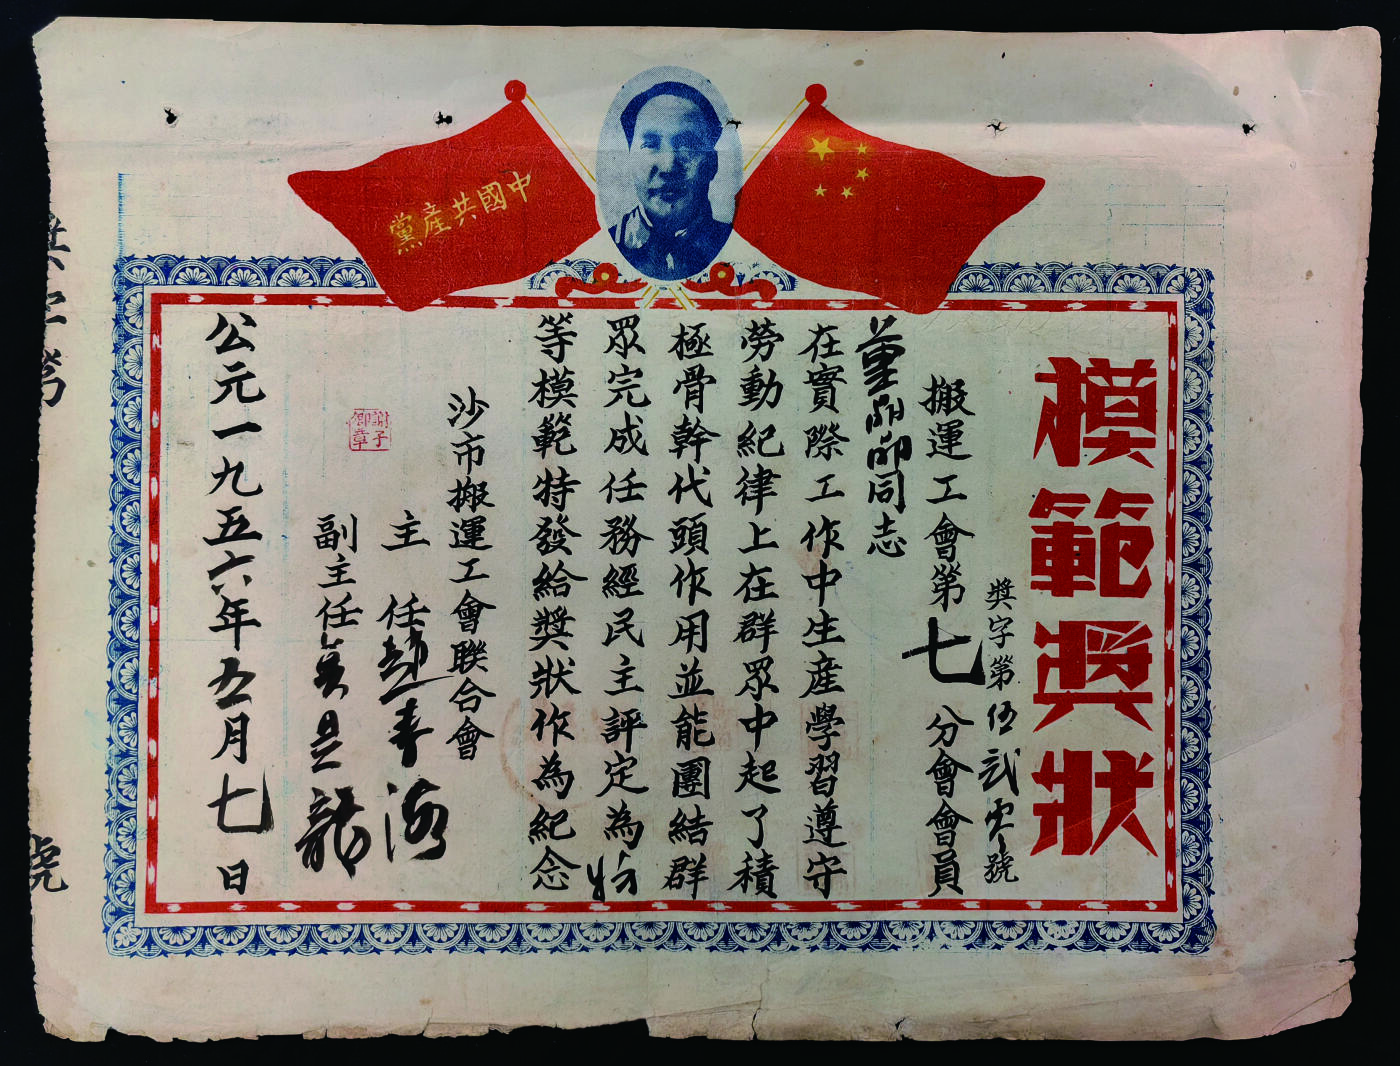 中國共產黨
模範獎狀
獎字第伍貳零號
搬運工會第七分會會員
同志
在實際工作中生產學習遵守
勞動紀律上在群眾中起了積
極骨幹代頭作用並能團結群
眾完成任務經民主評定為
等模範特發給獎狀作為紀念
沙市搬運工會聯合會
主任
副主任
謝子卿章
公元一九五六年五月七日